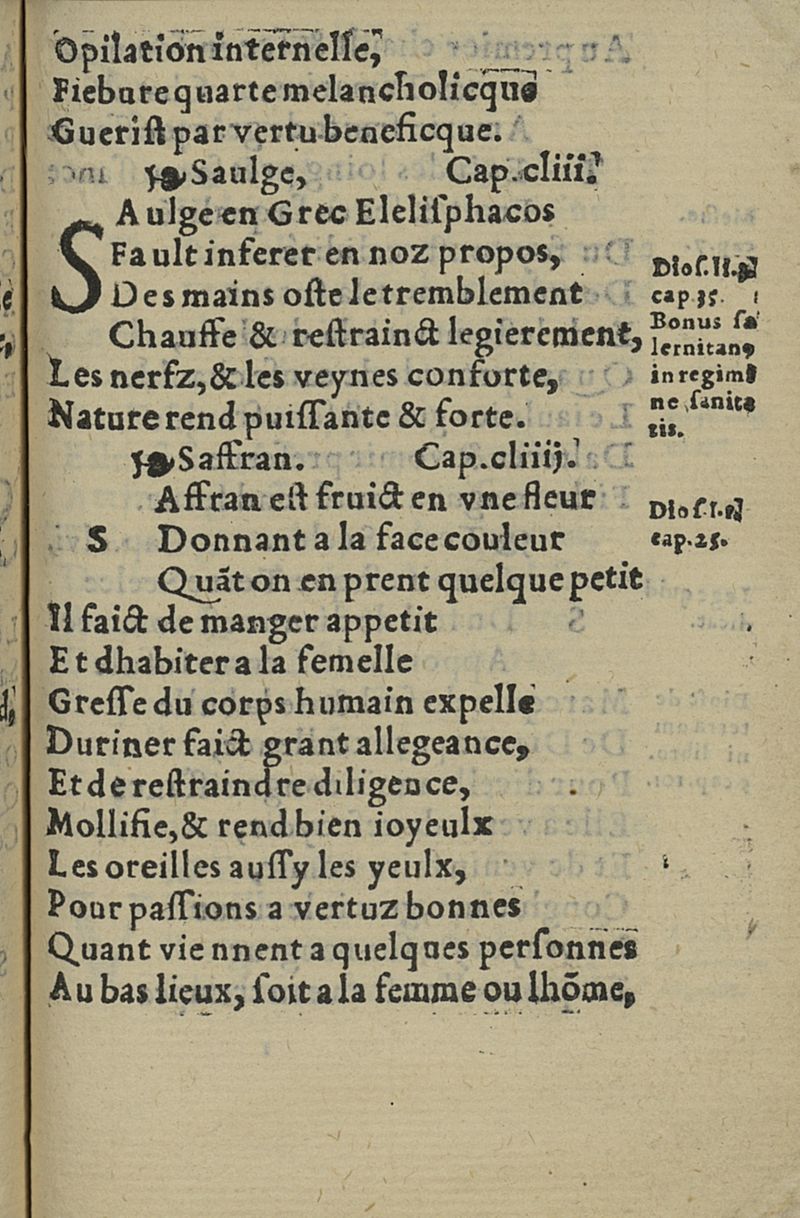 Opilation internelle,
Fiebure quarte melancholicque
Gueriſt par vertu beneficque.
Saulge, Cap.cliii.
SAulge en Grec Eleliſphacos
Fault inferer en noz propos,
Des mains oſte le tremblement
Chauffe & reſtrainct legierement,
Les nerfz,& les veynes conforte,
Nature rend puiſſante & forte.
Dioſ.II.
cap.35.
Bonus ſa
lernitanꝰ
in regimi
ne ſanita
tis.
Saffran. Cap.cliiij.
SAffran eſt fruict en vne fleur
Donnant a la face couleur
Quāt on en prent quelque petit
Il faict de manger appetit
Et dhabiter a la femelle
Greſſe du corps humain expelle
Duriner faict grant allegeance,
Et de reſtraindre diligence,
Mollifie,& rend bien ioyeulx
Les oreilles auſſy les yeulx,
Pour paſſions a vertuz bonnes
Quant viennent a quelques perſonnes
Au bas lieux, ſoit a la femme ou lhōme,
Dioſ.I.
cap.25.